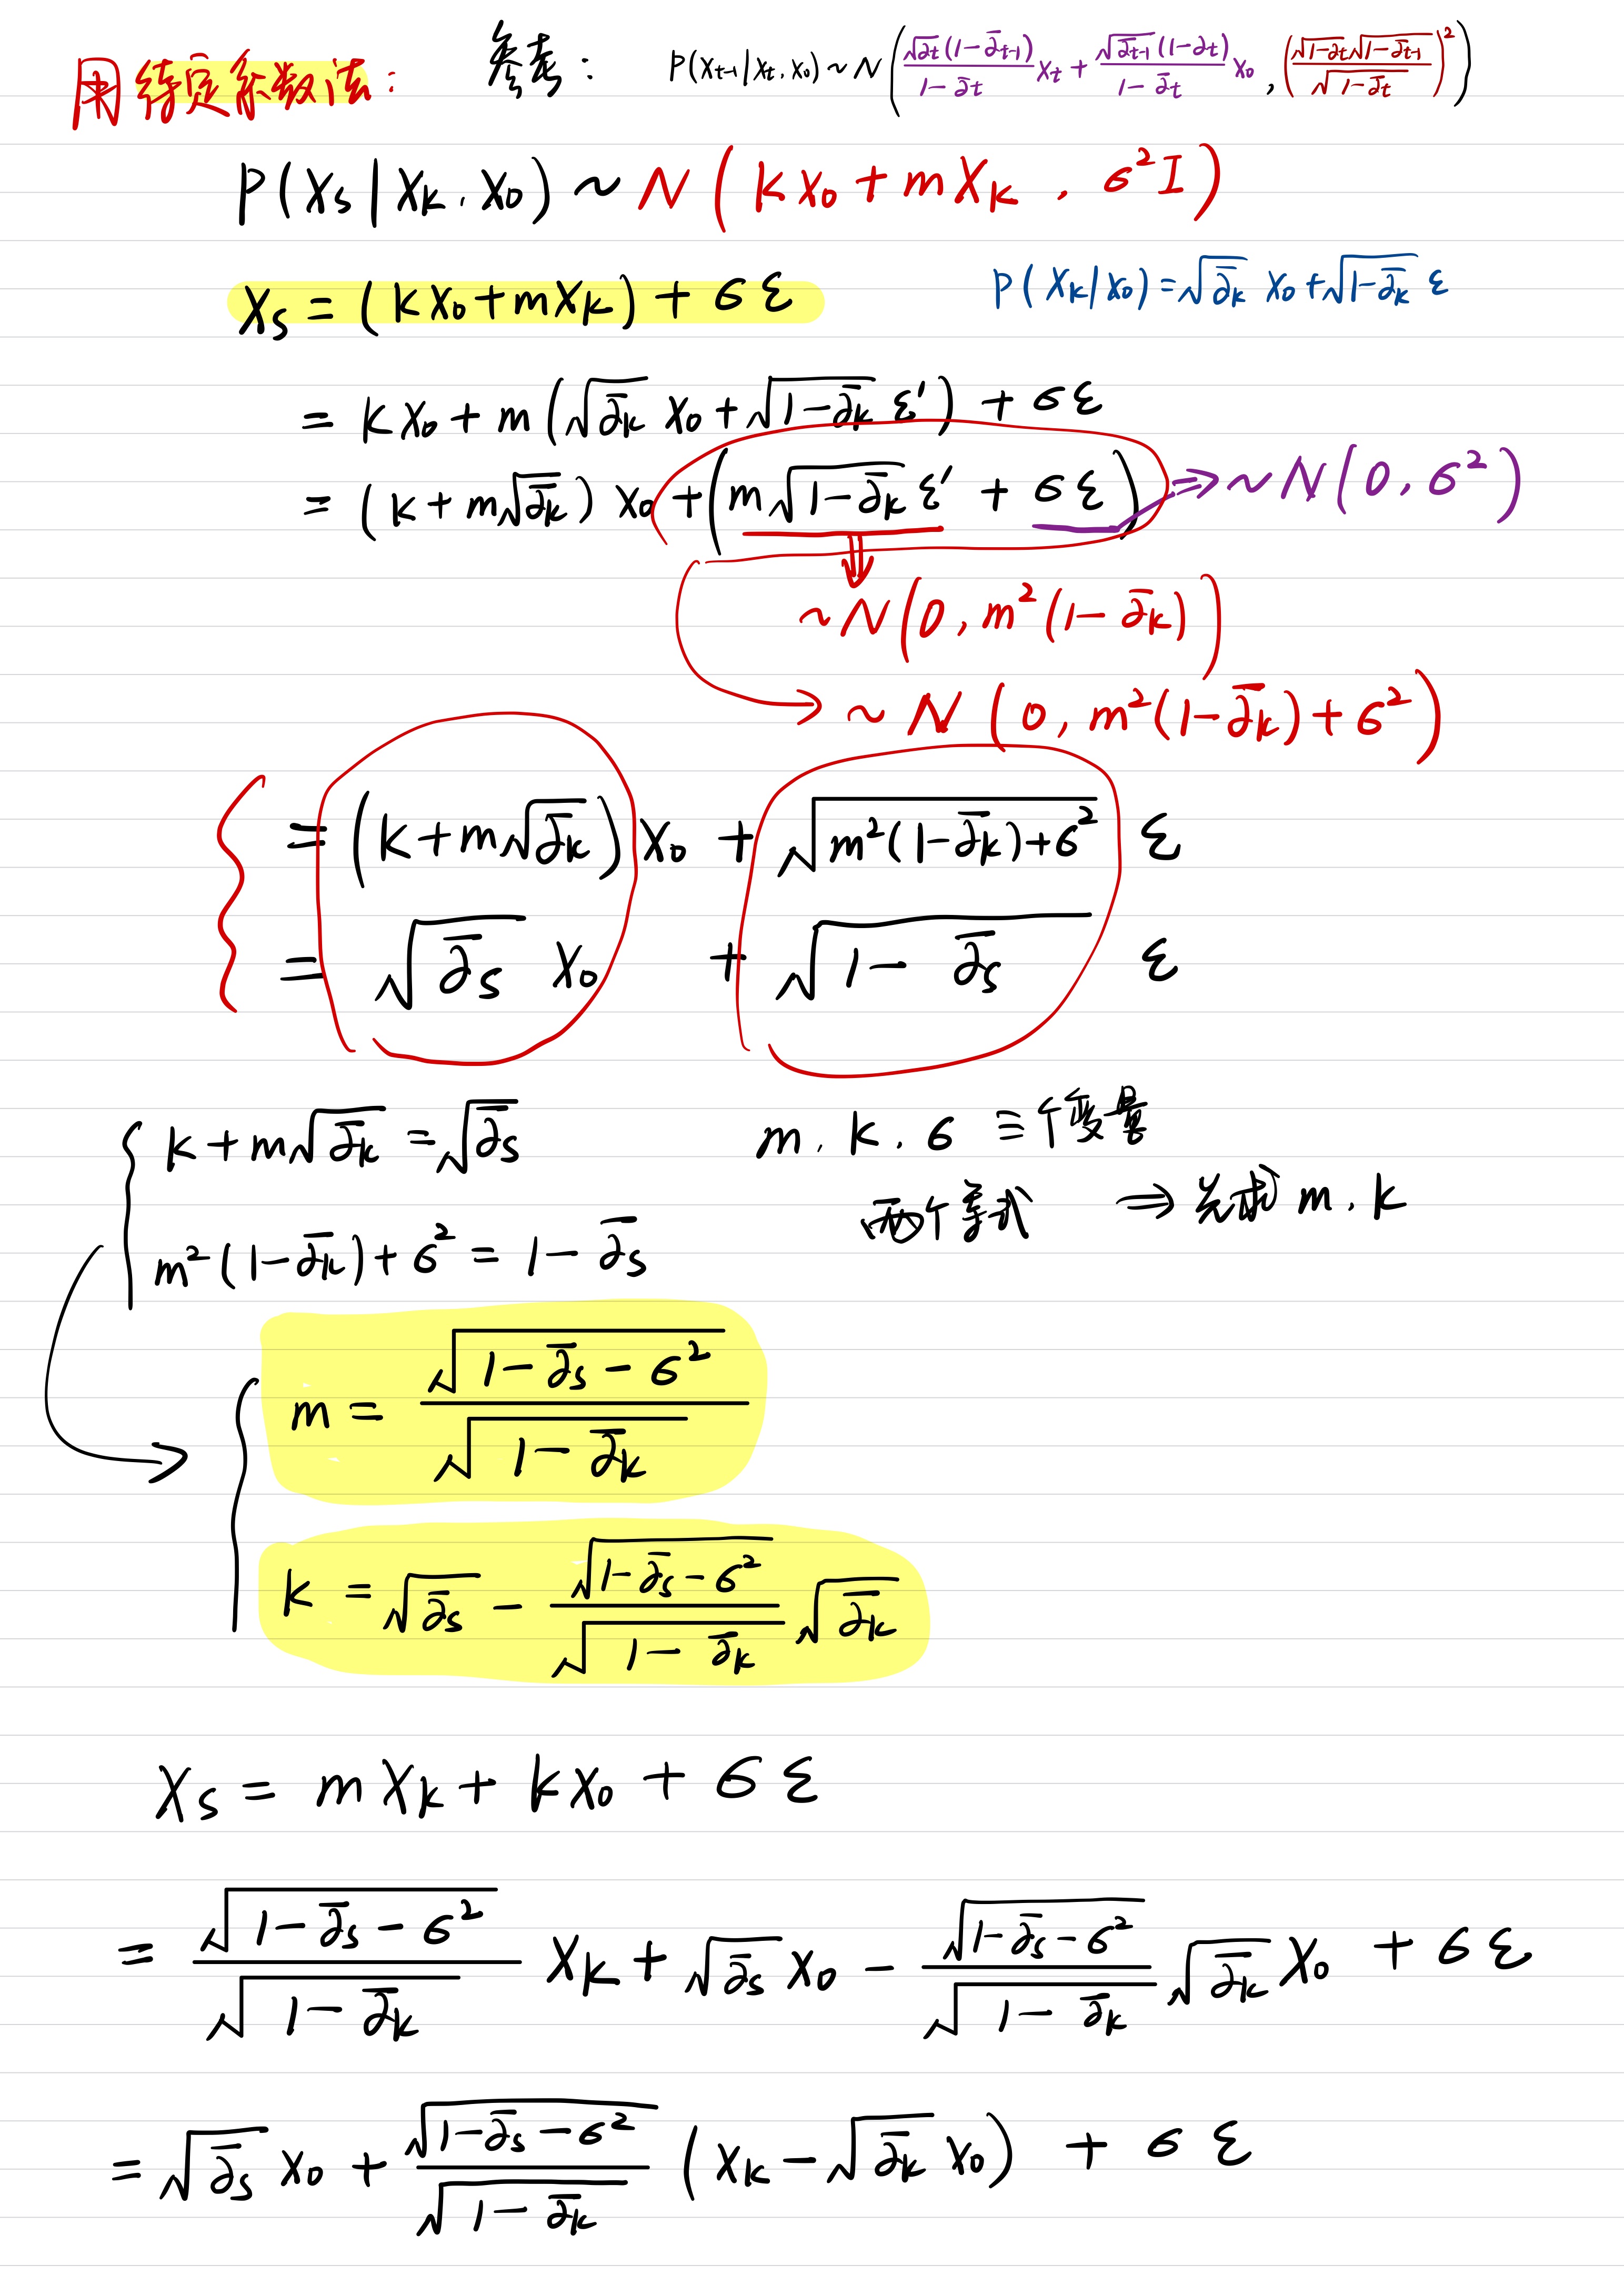 用待定系数法:
参考: P(Xt-1|Xt, X0) ~ N( √αt(1-ᾱt-1)/(1-ᾱt) Xt + √ᾱt-1(1-αt)/(1-ᾱt) X0 , (√1-αt √1-ᾱt-1 / √1-ᾱt)² )
P(Xs|Xk, X0) ~ N( kX0 + mXk , σ²I )
Xs = (kX0 + mXk) + σε
P(Xk|X0) = √ᾱk X0 + √1-ᾱk ε
= kX0 + m(√ᾱk X0 + √1-ᾱk ε') + σε
= (k + m√ᾱk) X0 + (m√1-ᾱk ε' + σε) ⇒ ~ N(0, σ²)
~ N(0, m²(1-ᾱk))
~ N(0, m²(1-ᾱk) + σ²)
= (k + m√ᾱk) X0 + √m²(1-ᾱk)+σ² ε
= √ᾱs X0 + √1-ᾱs ε
k + m√ᾱk = √ᾱs
m²(1-ᾱk) + σ² = 1-ᾱs
m, k, σ 三个变量
两个等式 ⇒ 先求 m, k
m = √1-ᾱs-σ² / √1-ᾱk
k = √ᾱs - √1-ᾱs-σ² / √1-ᾱk √ᾱk
Xs = mXk + kX0 + σε
= √1-ᾱs-σ² / √1-ᾱk Xk + √ᾱs X0 - √1-ᾱs-σ² / √1-ᾱk √ᾱk X0 + σε
= √ᾱs X0 + √1-ᾱs-σ² / √1-ᾱk (Xk - √ᾱk X0) + σε